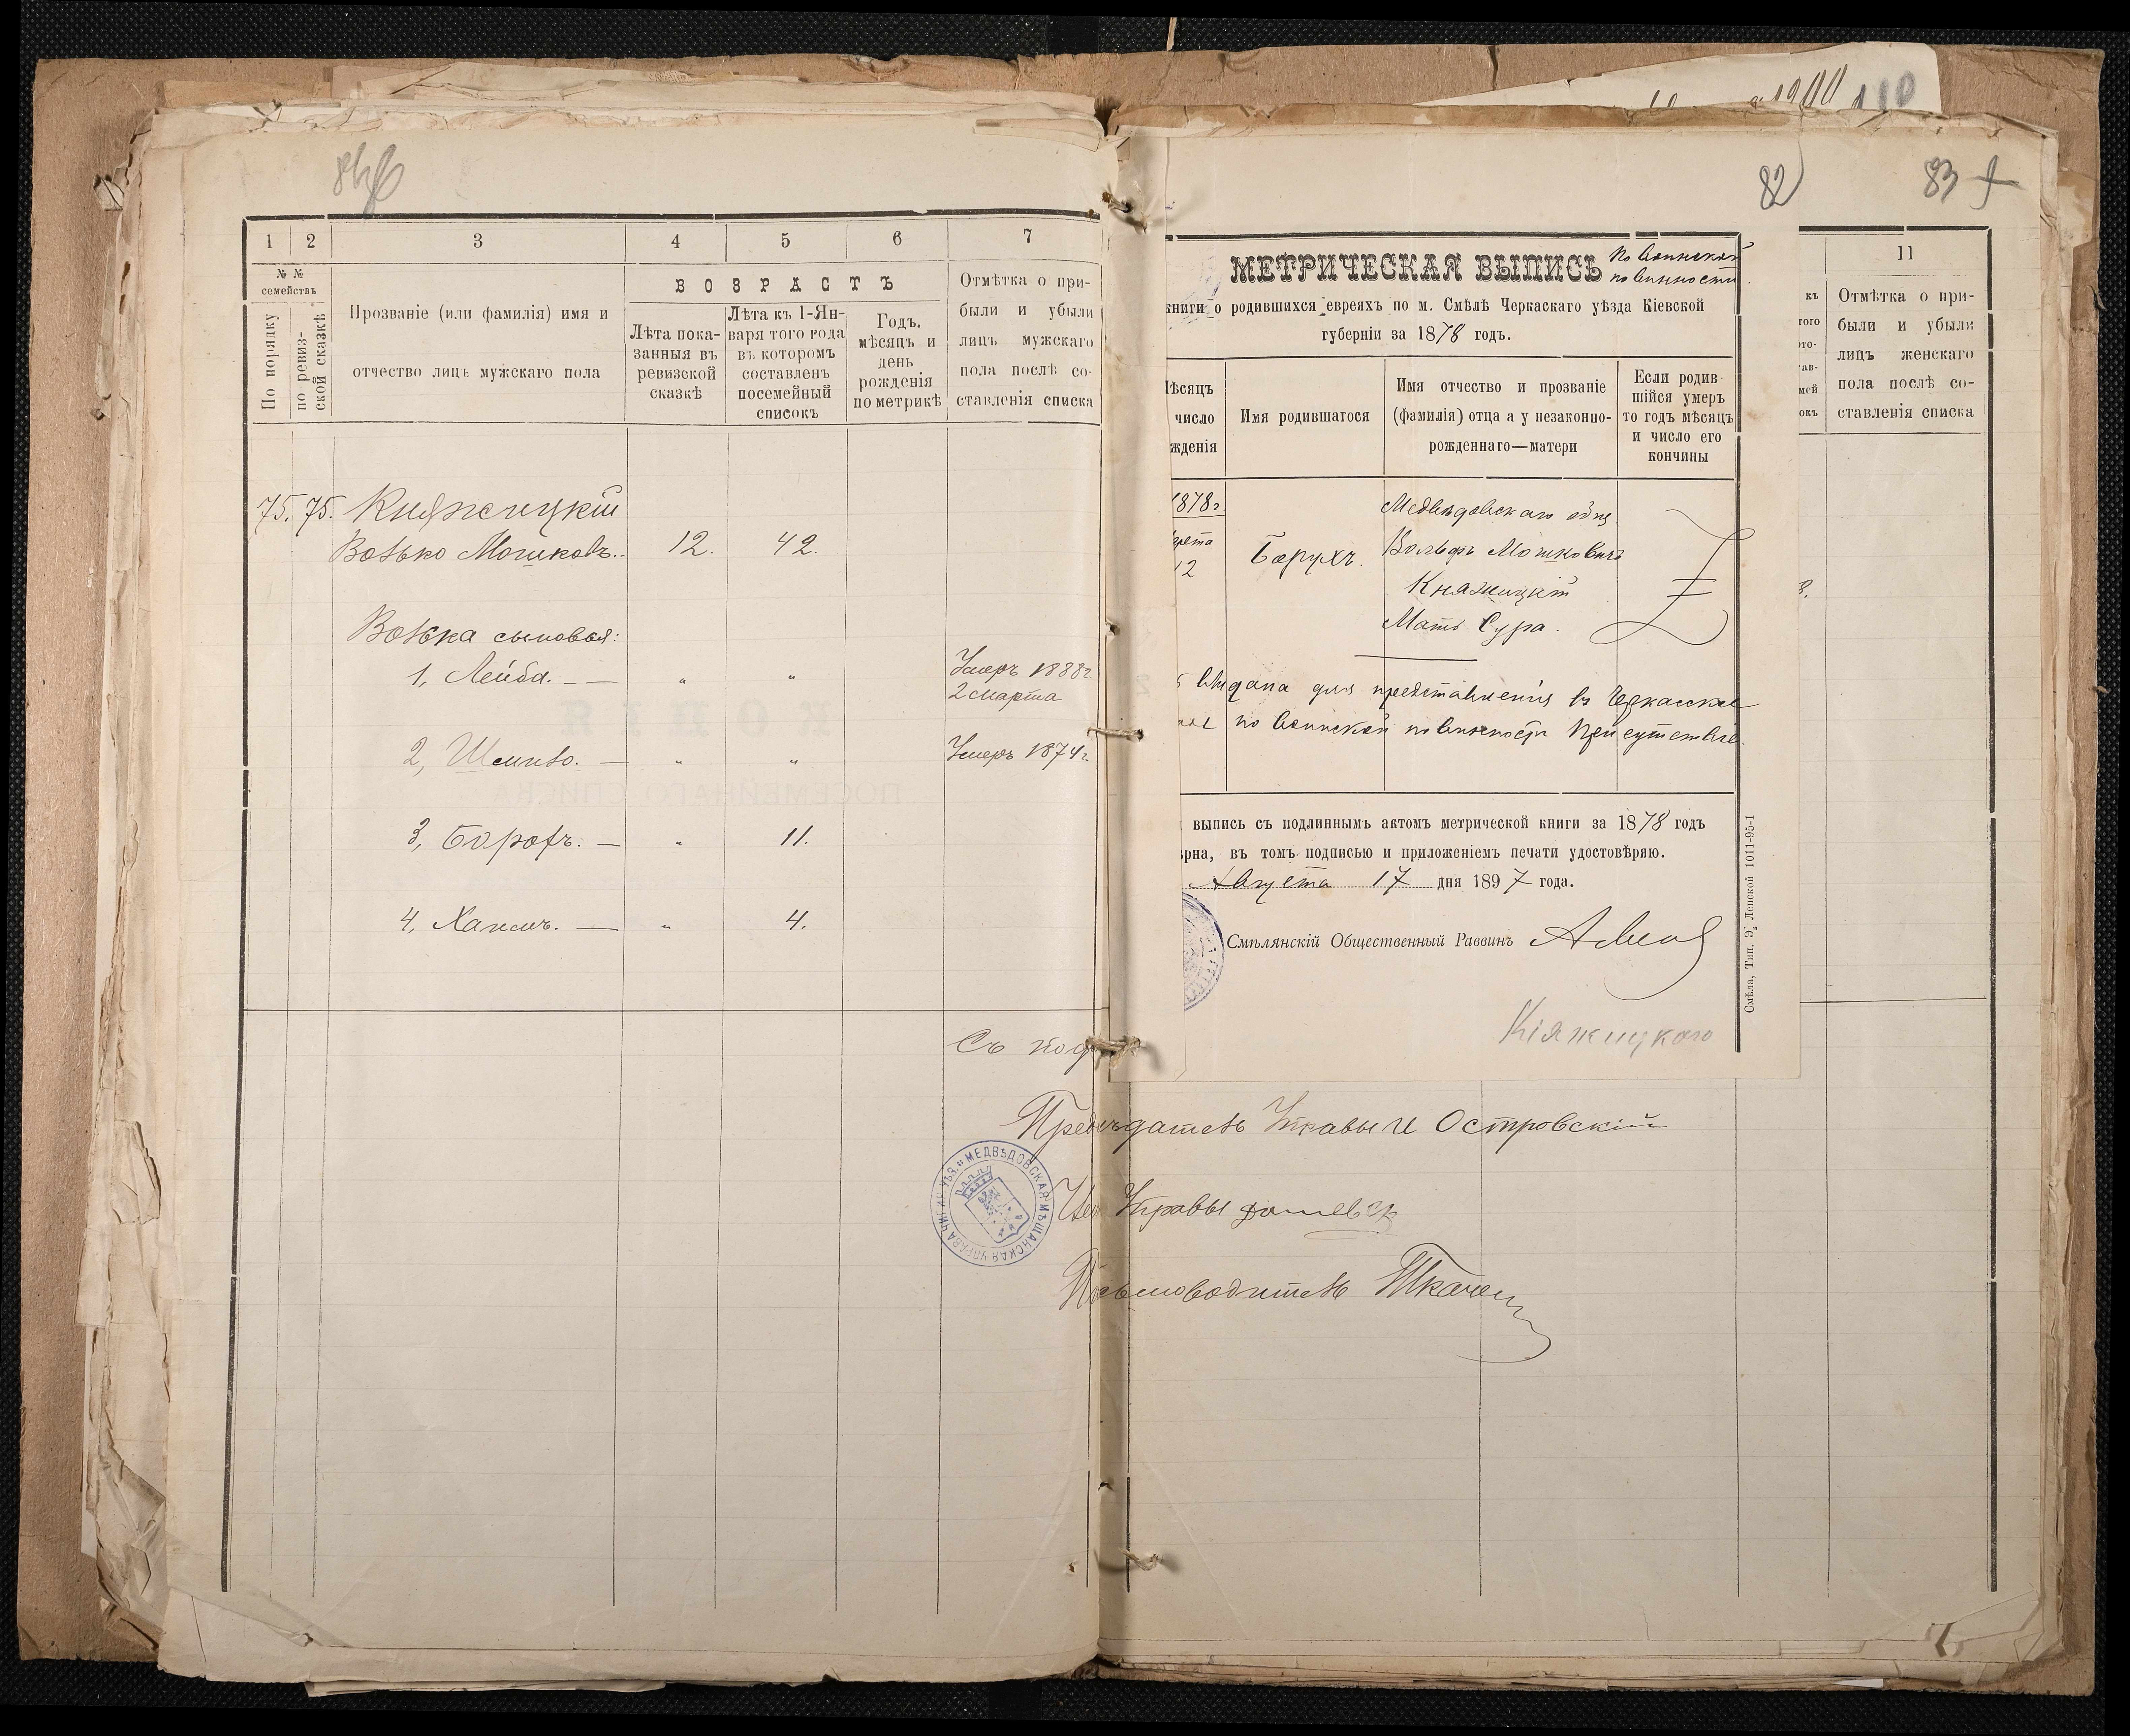 1900 110
82
83
1 2 3 4 5 6 7
№ №
семействъ
По порядку
по ревиз-
ской сказкѣ
Прозваніе (или фамилія) имя и
отчество лицъ мужскаго пола
ВОЗРАСТЪ
Лѣта пока-
занныя въ
ревизской
сказкѣ
Лѣта къ 1-Ян-
варя того года
въ которомъ
составленъ
посемейный
списокъ
Годъ.
мѣсяцъ и
день
рожденія
по метрикѣ
Отмѣтка о при-
были и убыли
лицъ мужскаго
пола послѣ со-
ставленія списка
75. 75. Княжицкій
Волько Мошковъ. 12. 42.
Волька сыновья:
1, Лейба. — „ „ Умеръ 1888 г.
2 марта
2, Шмилъ. — „ „ Умеръ 1874 г.
3, Борохъ. — „ 11.
4, Хаимъ. — „ 4.
Съ под
МЕТРИЧЕСКАЯ ВЫПИСЬ По воинской
повинности.
книги о родившихся евреяхъ по м. Смѣлѣ Черкаскаго уѣзда Кіевской
губерніи за 1878 годъ.
ѣсяцъ
число
жденія
Имя родившагося
Имя отчество и прозваніе
(фамилія) отца а у незаконно-
рожденнаго—матери
Если родив-
шійся умеръ
то годъ мѣсяцъ
и число его
кончины
1878 г
12
Борухъ.
Вольфъ Мошковичъ
Княжицкій
Мать Сура.
выдана для представленія въ Черкаское
по воинской повинности Присутствіе
выпись съ подлиннымъ актомъ метрической книги за 1878 годъ
ѣрна, въ томъ подписью и приложеніемъ печати удостовѣряю.
Августа 17 дня 1897 года.
Смѣлянскій Общественный Раввинъ
Княжицкаго
Смѣла, Тип. Э. Ленской 1011-95-1
11
къ
того
ото-
тав-
мей
окъ
Отмѣтка о при-
были и убыли
лицъ женскаго
пола послѣ со-
ставленія списка
Предсѣдатель Управы И Островскій
Управы
МЕДВѢДОВСКАЯ МѢЩАНСКАЯ УПРАВА
Письмоводитель